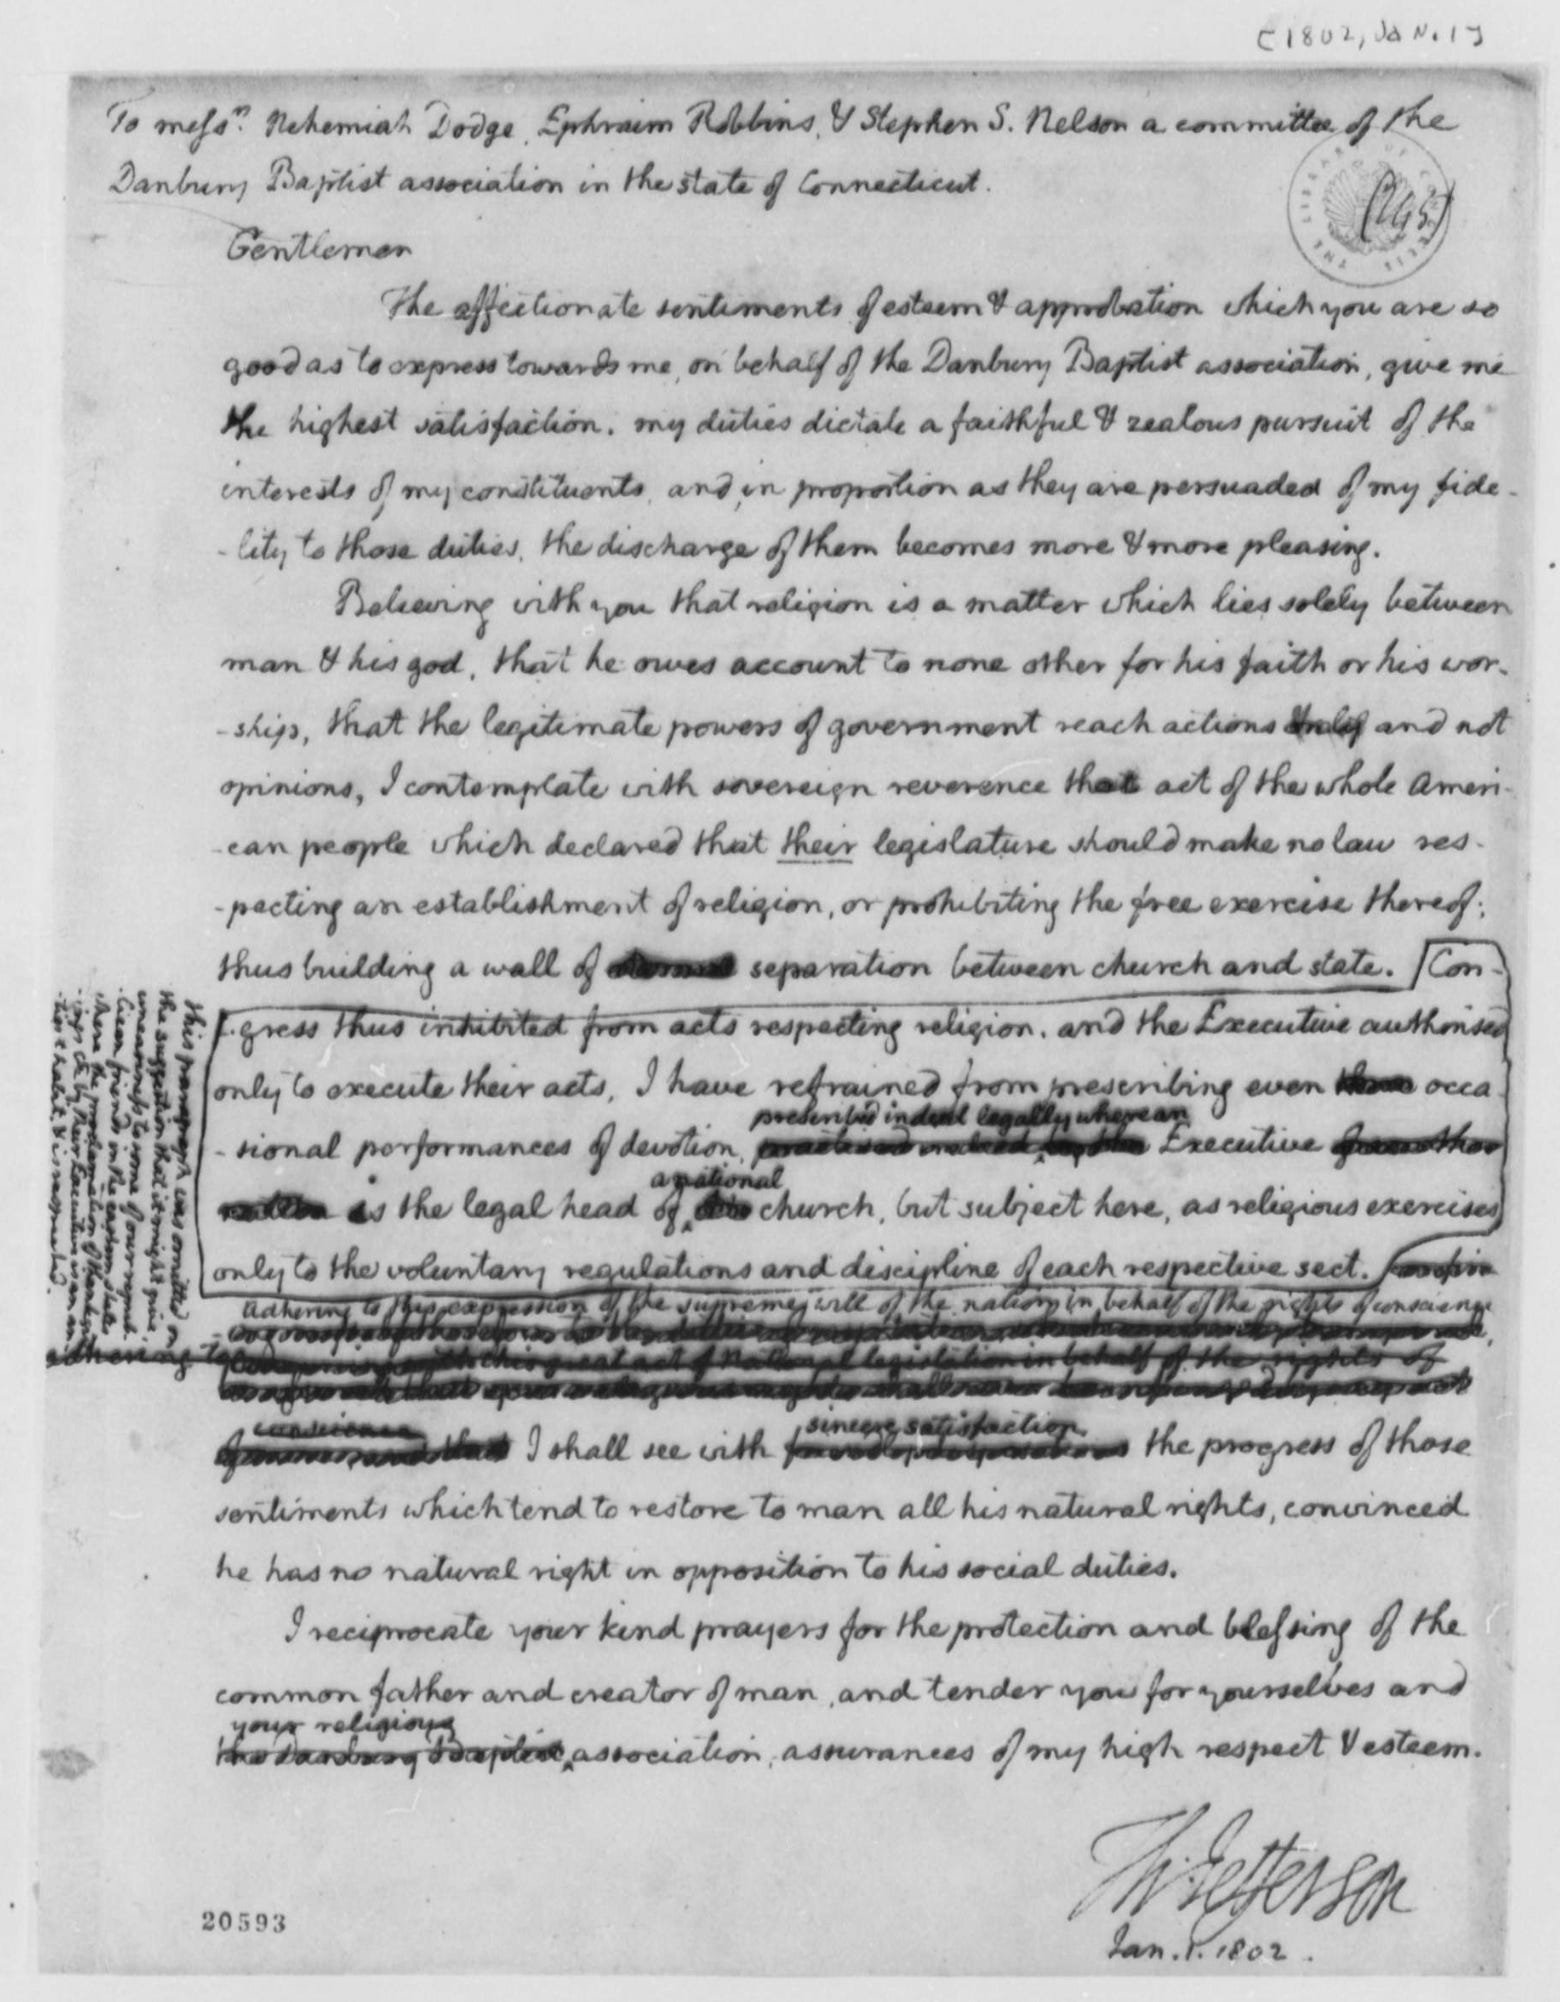 [1802, Jan. 1]
To messrs. Nehemiah Dodge, Ephraim Robbins, & Stephen S. Nelson a committee of the
Danbury Baptist association in the state of Connecticut.
THE LIBRARY OF CONGRESS
Gentlemen
The affectionate sentiments of esteem & approbation which you are so
good as to express towards me, on behalf of the Danbury Baptist association, give me
the highest satisfaction. my duties dictate a faithful & zealous pursuit of the
interests of my constituents, and, in proportion as they are persuaded of my fide-
-lity to those duties, the discharge of them becomes more & more pleasing.
Believing with you that religion is a matter which lies solely between
man & his god, that he owes account to none other for his faith or his wor-
-ship, that the legitimate powers of government reach actions only and not
opinions, I contemplate with sovereign reverence that act of the whole Ameri-
-can people which declared that their legislature should make no law res-
-pecting an establishment of religion, or prohibiting the free exercise thereof;
thus building a wall of separation between church and state. [Con-
-gress thus inhibited from acts respecting religion, and the Executive authorised
only to execute their acts, I have refrained from prescribing even occa
-sional performances of devotion, Executive
prescribed indeed legally where an
is the legal head of church, but subject here, as religious exercises
a national
only to the voluntary regulations and discipline of each respective sect.
adhering to this expression of the supreme will of the nation in behalf of the rights of conscience
adhering to this great act of national legislation in behalf of the rights of
conscience
I shall see with the progress of those
sincere satisfaction
sentiments which tend to restore to man all his natural rights, convinced
he has no natural right in opposition to his social duties.
I reciprocate your kind prayers for the protection and blessing of the
common father and creator of man, and tender you for yourselves and
your religious
the Danbury Baptist association, assurances of my high respect & esteem.
Th: Jefferson
Jan. 1. 1802.
this paragraph was omitted on
the suggestion that it might give
uneasiness to some of our repub-
-lican friends in the eastern states
where the proclamation of thanksgiv-
-ings &c by their Executive is an an-
-tient habit, & is respected.
20593